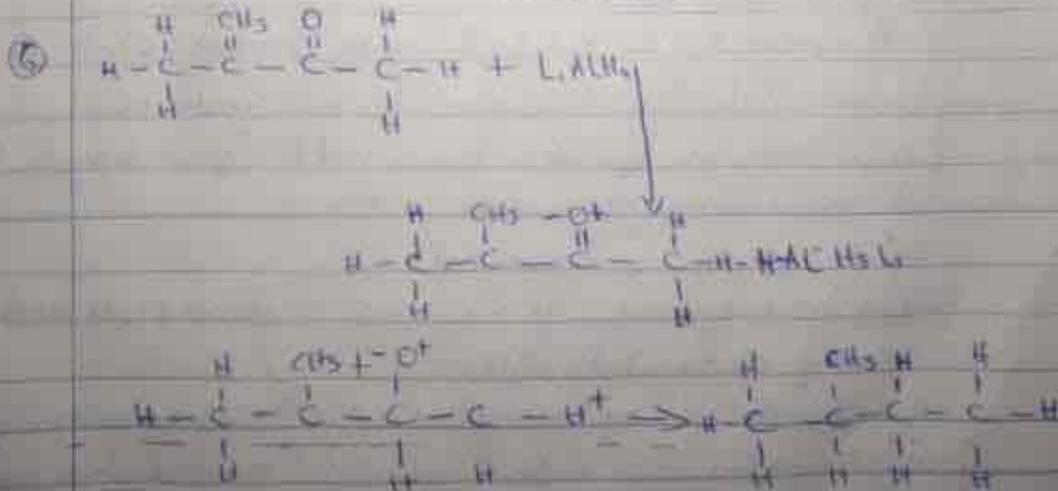 H CH3 O H
6 H - C - C - C - C - H + LiAlH4
H H
H CH3 -O+ H
H - C - C - C - C - H - H-AlH3 Li
H H
H CH3 + -O+
H - C - C - C - C - H+ ⇒
H H H
H CH3 H H
H - C - C - C - C - H
H H H H